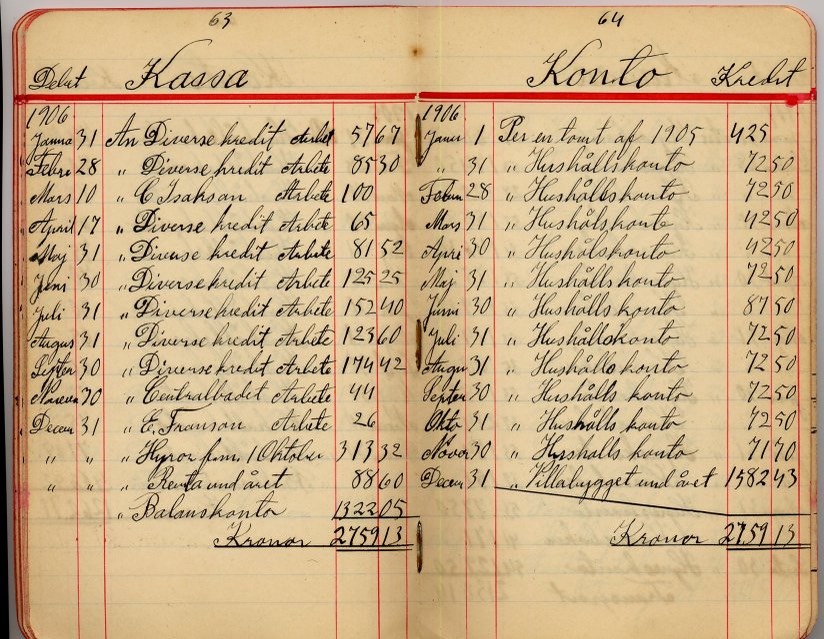 63
Debet Kassa
1906
Janua 31 An Diverse kredit Arbet 57 67
Febru 28 " Diverse kredit Arbete 85 30
Mars 10 " C Isakson Arbete 100
April 17 " Diverse kredit Arbete 65
Maj 31 " Diverse kredit Arbete 81 52
Juni 30 " Diverse kredit Arbete 125 25
Juli 31 " Diverse kredit Arbete 152 40
Augus 31 " Diverse kredit Arbete 123 60
Septer 30 " Diverse kredit Arbete 174 42
30 " Centralbadet Arbete 44
Decem 31 " E. Franson Arbete 26
" " " Hyror from 1 Oktober 313 32
" " " Renta und året 88 60
" Balanskonto 1322 05
Kronor 2759 13
64
Konto Kredit
1906
Janu 1 Per en tomt af 1905 425
" 31 " Hushållskonto 72 50
Febru 28 " Hushållskonto 72 50
Mars 31 " Hushålskonto 42 50
Apri 30 " Hushålskonto 42 50
Maj 31 " Hushållskonto 72 50
Juni 30 " Hushålls konto 87 50
Juli 31 " Hushållskonto 72 50
Augu 31 " Hushålls konto 72 50
Septer 30 " Hushålls konto 72 50
Okto 31 " Hushålls konto 72 50
Novor 30 " Hushalls konto 71 70
Decem 31 " Villabygget und året 1582 43
Kronor 2759 13